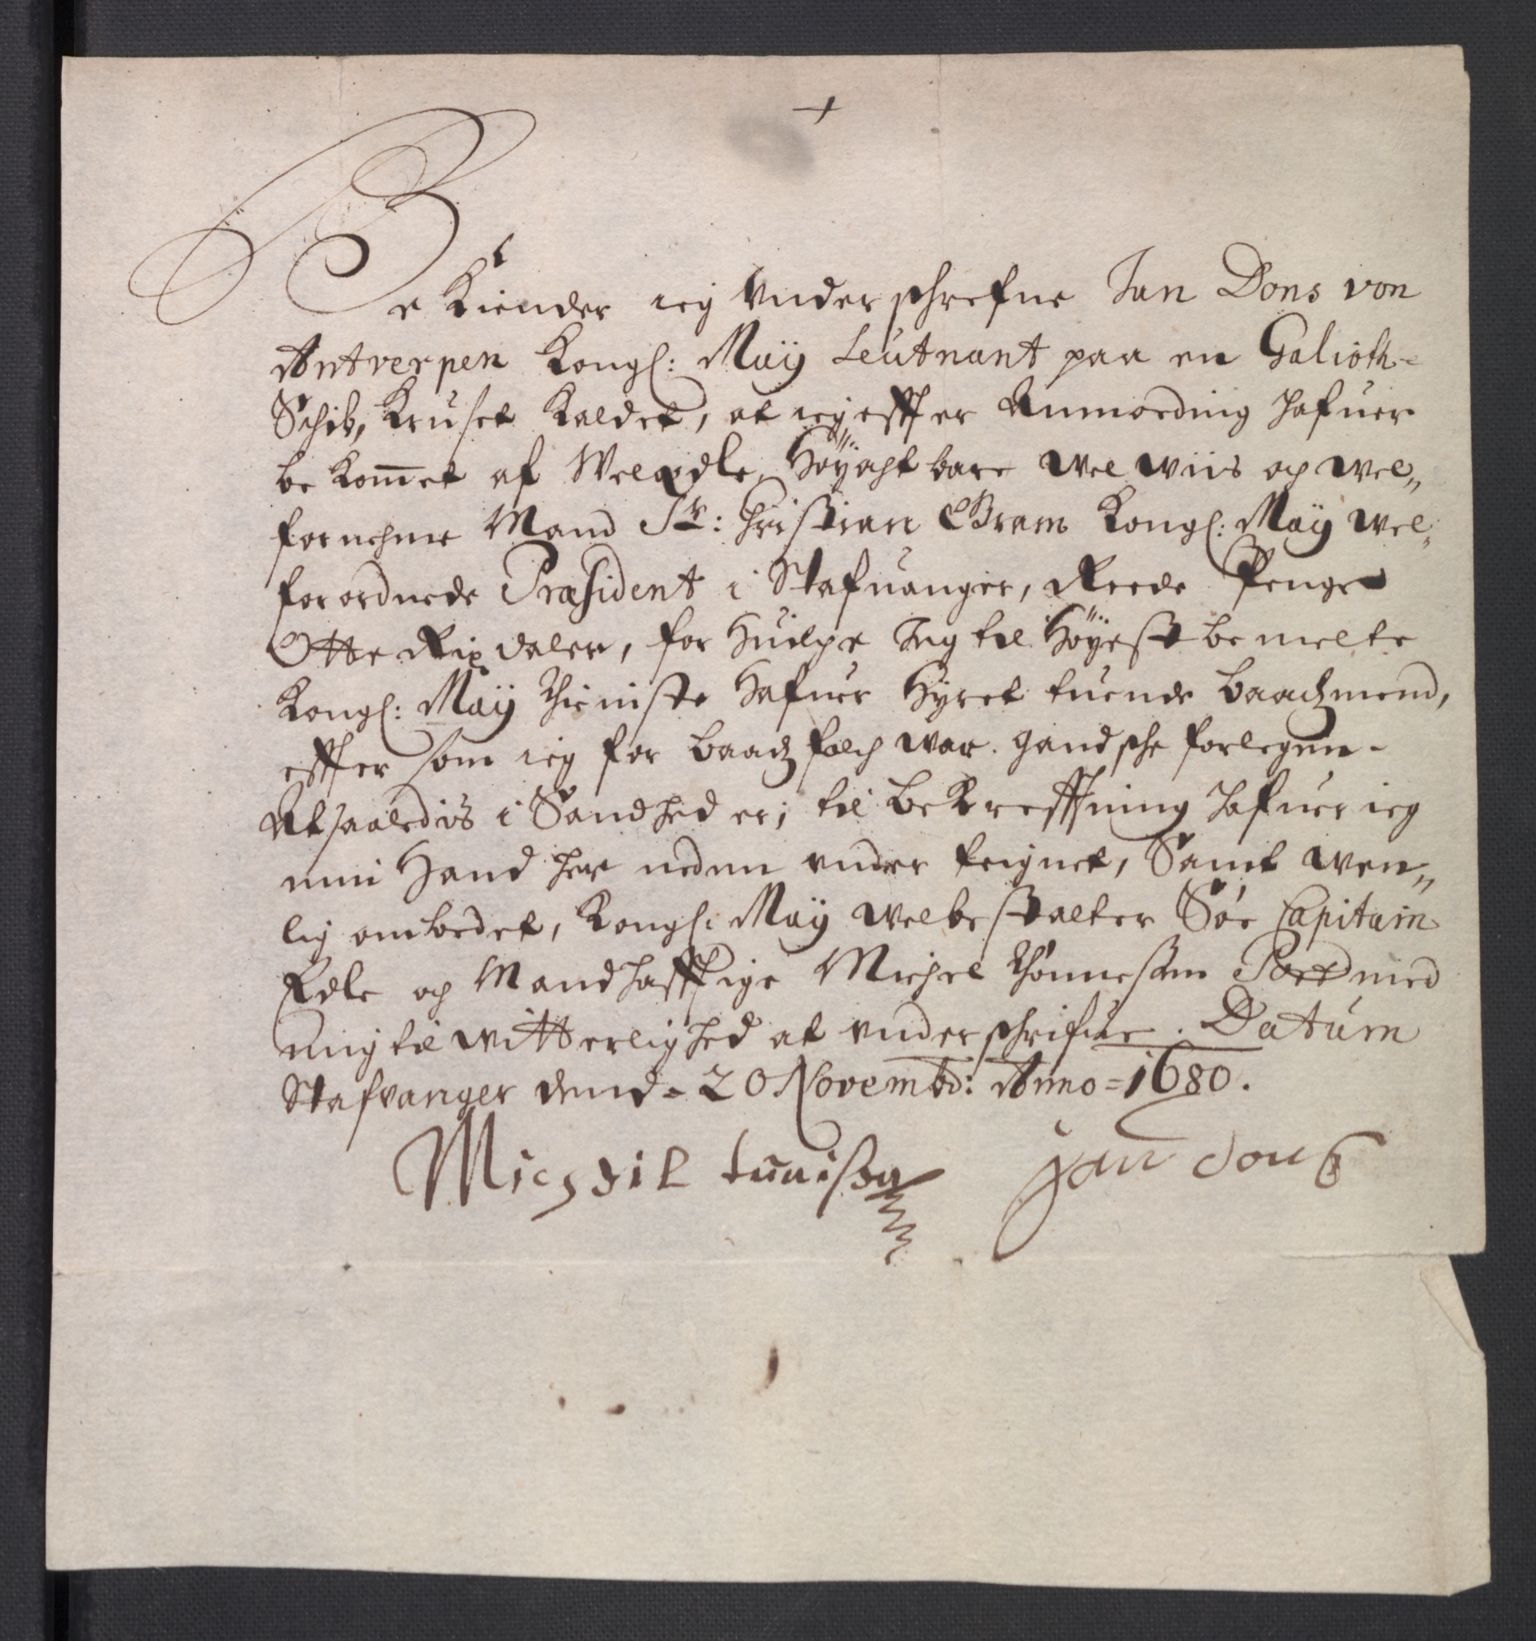 +
Be Kiender ieg Vnderschrefne Jan Dons von
Antverpen Kongl: Maÿ Leutnant paa en Galioth-
Schib, Kruset Kaldet, at ieg effter Anmording hafuer
be Kom̄et af WelEdle, Høÿacht bare Wel Wiis og Wel„
fornehme Mand Sr: Christian Bram Kongl: Maÿ Wel„
forordnede Præsident i Stafuanger, Reede Penge
Otte Rix daler, for Huilche Jeg til Høÿest be melte
Kongl: Maÿ Thieniste Hafuer Hÿret tuende Baadzmend,
effter som ieg for Baadz folch war gandsche forlegen-
At saaledis i Sandhed er; til BeKrefftning hafuer ieg
min Hand her neden vnder teignet, Samt Wen„
lig ombedet, Kongl: Maÿ Welbestalter Søe Capitain
Edle og Mandhafftige Michel Thønnesen med
mig til Witterlighed at vnderschrifue. Datum
Stafvanger dend- 20 Novembr: Anno = 1680.
Michgil tunisen jan dons